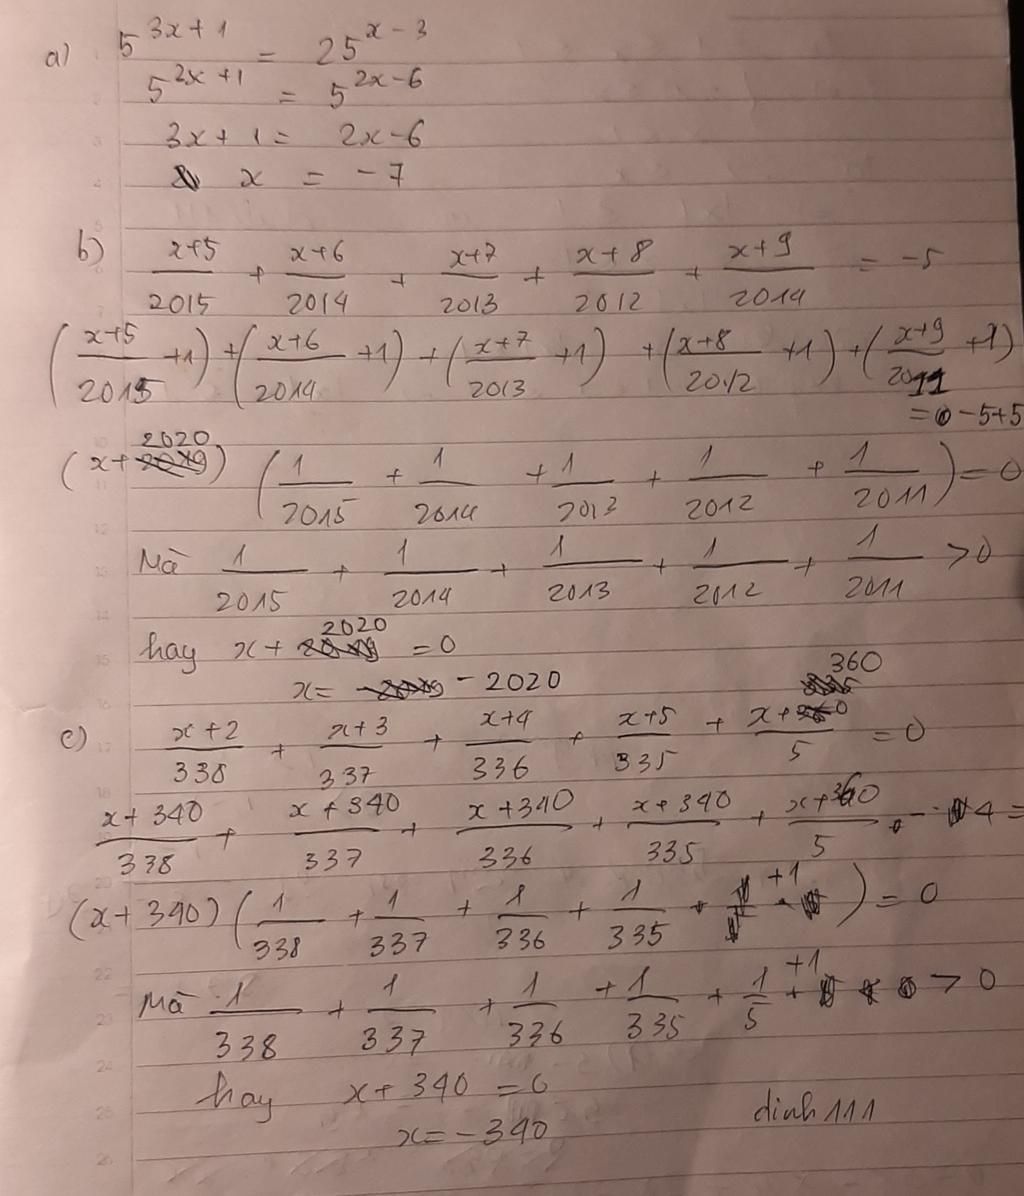 a) 5^{3x+1} = 25^{x-3}
5^{2x+1} = 5^{2x-6}
3x+1 = 2x-6
x = -7
b) \frac{x+5}{2015} + \frac{x+6}{2014} + \frac{x+7}{2013} + \frac{x+8}{2012} + \frac{x+9}{2014} = -5
(\frac{x+5}{2015} +1) + (\frac{x+6}{2014} +1) + (\frac{x+7}{2013} +1) + (\frac{x+8}{2012} +1) + (\frac{x+9}{2011} +1)
= -5+5
(x+2020) (\frac{1}{2015} + \frac{1}{2014} + \frac{1}{2013} + \frac{1}{2012} + \frac{1}{2011}) = 0
Mà \frac{1}{2015} + \frac{1}{2014} + \frac{1}{2013} + \frac{1}{2012} + \frac{1}{2011} > 0
hay x + 2020 = 0
x = -2020
c) \frac{x+2}{338} + \frac{x+3}{337} + \frac{x+4}{336} + \frac{x+5}{335} + \frac{x+360}{5} = 0
\frac{x+340}{338} + \frac{x+340}{337} + \frac{x+340}{336} + \frac{x+340}{335} + \frac{x+360}{5} - 4 =
(x+340) (\frac{1}{338} + \frac{1}{337} + \frac{1}{336} + \frac{1}{335} +1) = 0
Mà \frac{1}{338} + \frac{1}{337} + \frac{1}{336} + \frac{1}{335} + \frac{1}{5} +1 > 0
hay x + 340 = 0
x = -340
dinh 111